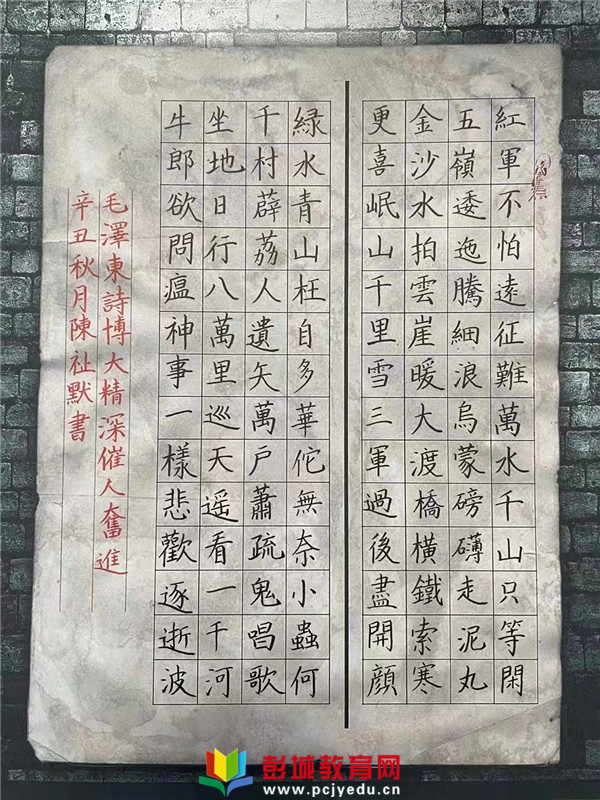 紅軍不怕遠征難萬水千山只等閑
五嶺逶迤騰細浪烏蒙磅礴走泥丸
金沙水拍雲崖暖大渡橋橫鐵索寒
更喜岷山千里雪三軍過後盡開顔
綠水青山枉自多華佗無奈小蟲何
千村薜荔人遺矢萬户蕭疏鬼唱歌
坐地日行八萬里巡天遥看一千河
牛郎欲問瘟神事一樣悲歡逐逝波
毛澤東詩博大精深催人奮進
辛丑秋月陳祉默書
彭城教育网
www.pcjyedu.cn